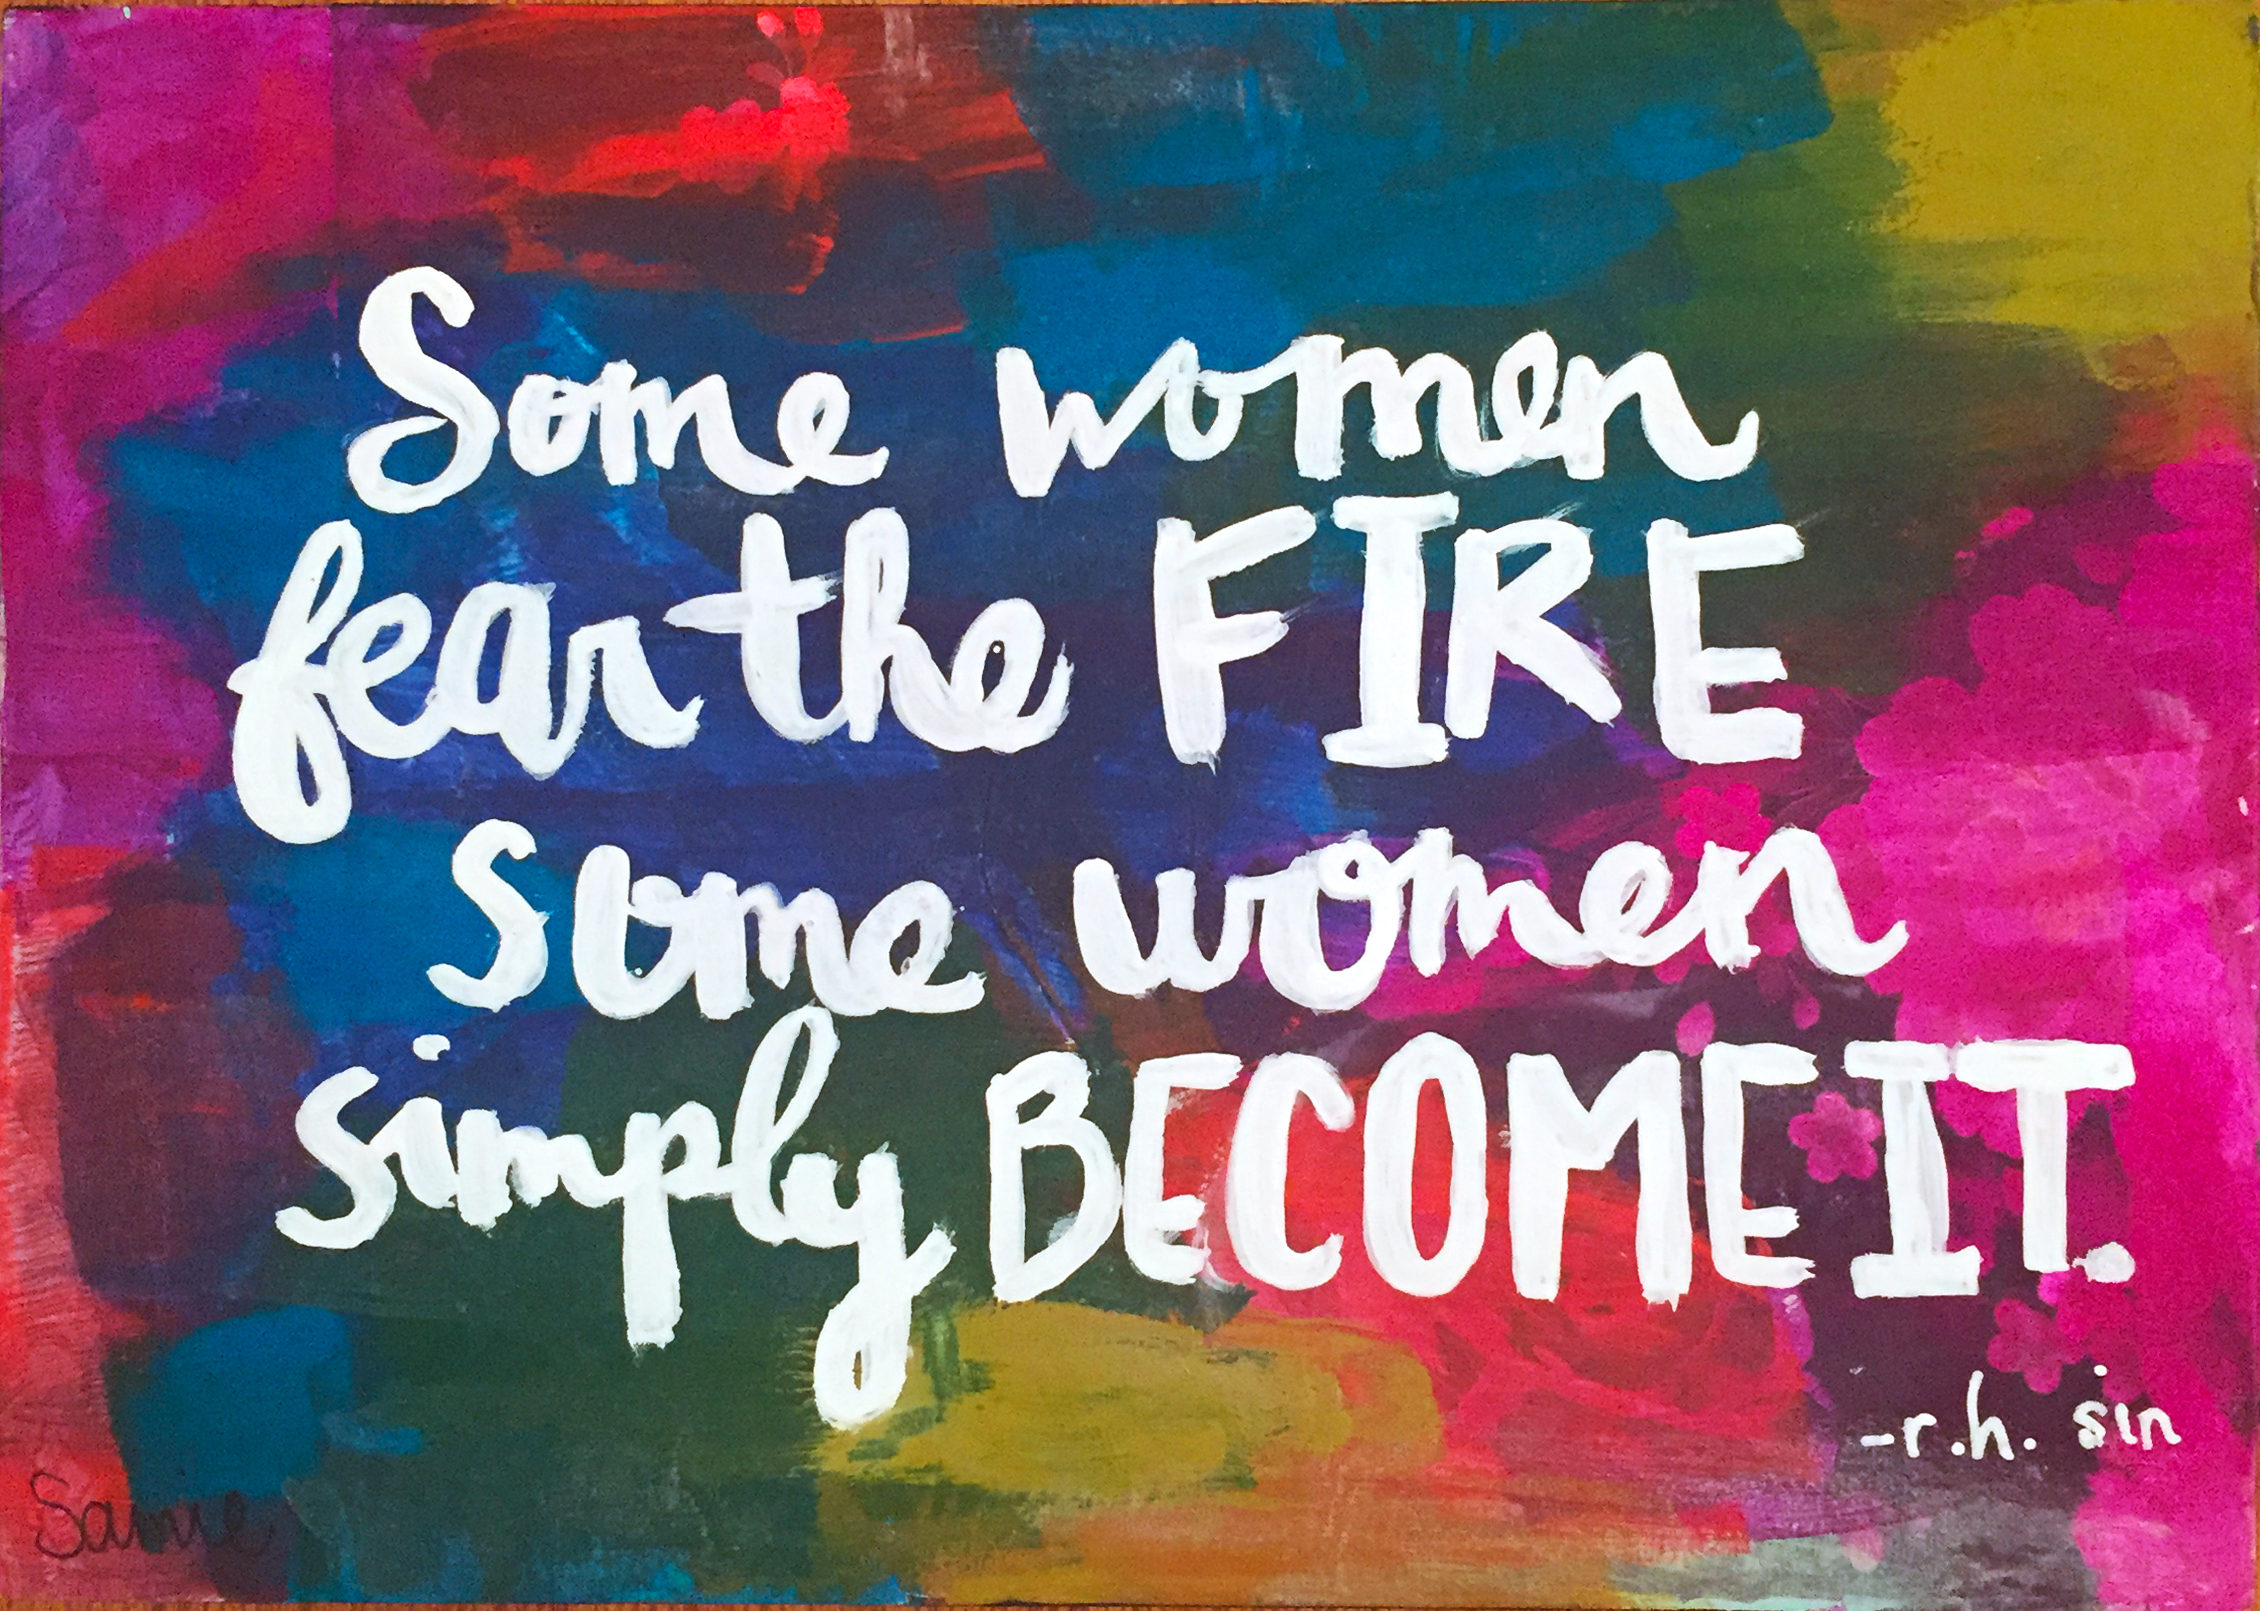 Some women
fear the FIRE
Some women
simply BECOME IT.
-r.h. sin